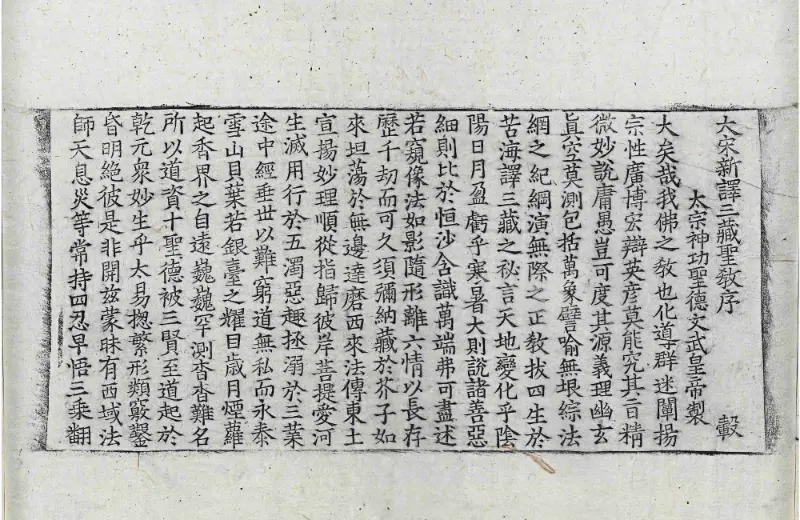 大宋新譯三藏聖教序
太宗神功聖德文武皇帝製 轂
大矣哉我佛之教也化導群迷闡揚
宗性廣博宏辯英彦莫能究其旨精
微妙說庸愚豈可度其源義理幽玄
真空莫測包括萬象譬喻無垠綜法
網之紀綱演無際之正教拔四生於
苦海譯三藏之秘言天地變化乎陰
陽日月盈虧乎寒暑大則說諸善惡
細則比於恒沙含識萬端弗可盡述
若窺像法如影隨形離六情以長存
歷千劫而可久須彌納藏於芥子如
來坦蕩於無邊達磨西來法傳東土
宣揚妙理順從指歸彼岸菩提愛河
生滅用行於五濁惡趣拯溺於三業
途中經垂世以難窮道無私而永泰
雪山貝葉若銀臺之耀目歲月煙蘿
起香界之自遠巍巍罕測杳杳難名
所以道資十聖德被三賢至道起於
乾元衆妙生乎太易揔繁形類竅鑿
昏明絕彼是非開兹蒙昧有西域法
師天息災等常持四忍早悟三乘翻